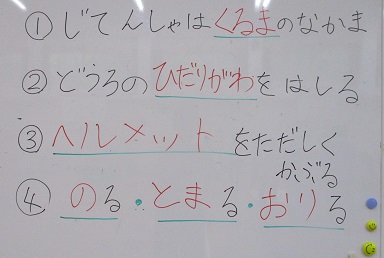 ①じてんしゃはくるまのなかま
②どうろのひだりがわをはしる
③ヘルメットをただしく
かぶる
④のる・とまる・おりる